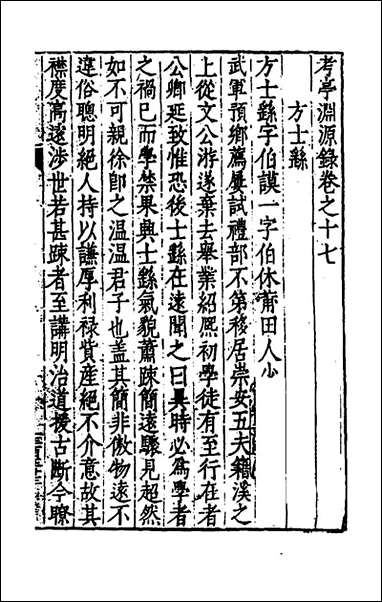 考亭淵源錄卷之十七
方士繇
方士繇字伯謨一字伯休莆田人少
武軍預鄉薦屢試禮部不第移居崇安五夫籍溪之
上從文公游遂棄去舉業紹熙初學徒有至行在者
公卿延致惟恐後士繇在遠聞之曰異時必為學者
之禍已而學禁果興士繇氣貌蕭踈簡遠驟見超然
如不可親徐即之温温君子也盖其簡非傲物遠不
違俗聰明絕人持以謙厚利祿貨産絕不介意故其
襟度高遠涉世若甚疎者至講明治道援古斷今瞭